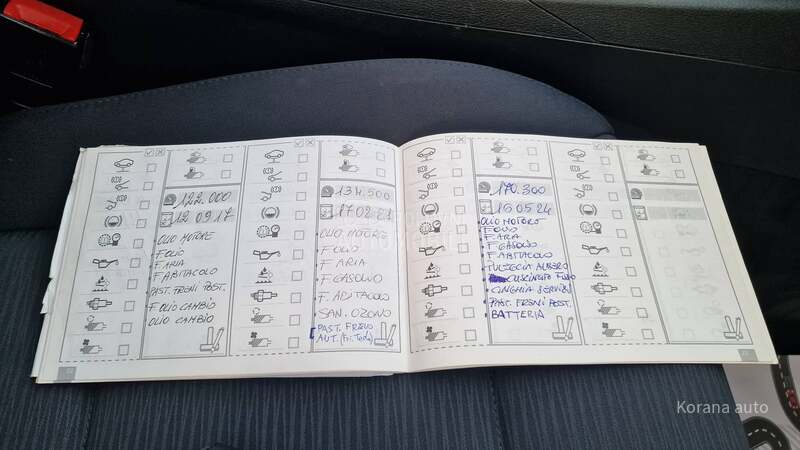 122.000
12 09 17
OLIO MOTORE
F OLIO
F ARIA
F ABITACOLO
PAST. FRENI POST.
F OLIO CAMBIO
OLIO CAMBIO
134.500
17 02 21
OLIO MOTORE
F OLIO
F ARIA
F GASOLIO
F. ABITACOLO
SAN. OZONO
PAST. FRENO
170.300
15 05 24
OLIO MOTORE
F OLIO
F. ARIA
F GASOLIO
F. ABITACOLO
PULEGGIA ALBERO
CUSCINETTO
CINGHIA SERVIZI
PAST. FRENI POST.
BATTERIA
Korana auto